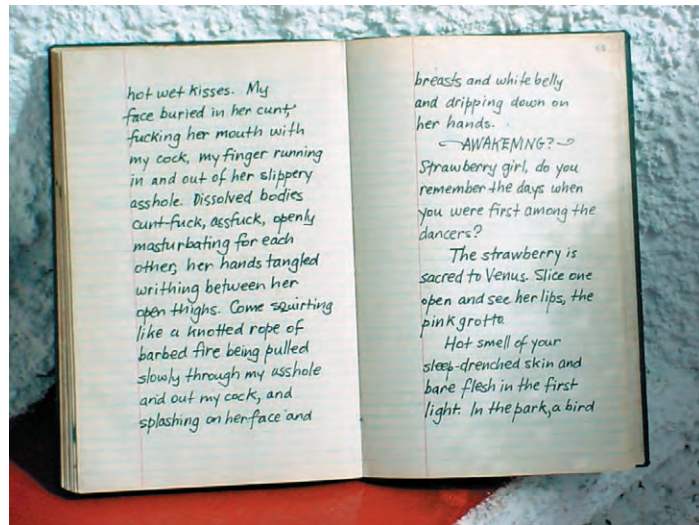 hot wet kisses. My
face buried in her cunt,
fucking her mouth with
my cock, my finger running
in and out of her slippery
asshole. Dissolved bodies
cunt-fuck, assfuck, openly
masturbating for each
other, her hands tangled
writhing between her
open thighs. Come squirting
like a knotted rope of
barbed fire being pulled
slowly through my asshole
and out my cock, and
splashing on her face and
breasts and white belly
and dripping down on
her hands.
AWAKENING?
Strawberry girl, do you
remember the days when
you were first among the
dancers?
The strawberry is
sacred to Venus. Slice one
open and see her lips, the
pink grotto.
Hot smell of your
sleep-drenched skin and
bare flesh in the first
light. In the park, a bird